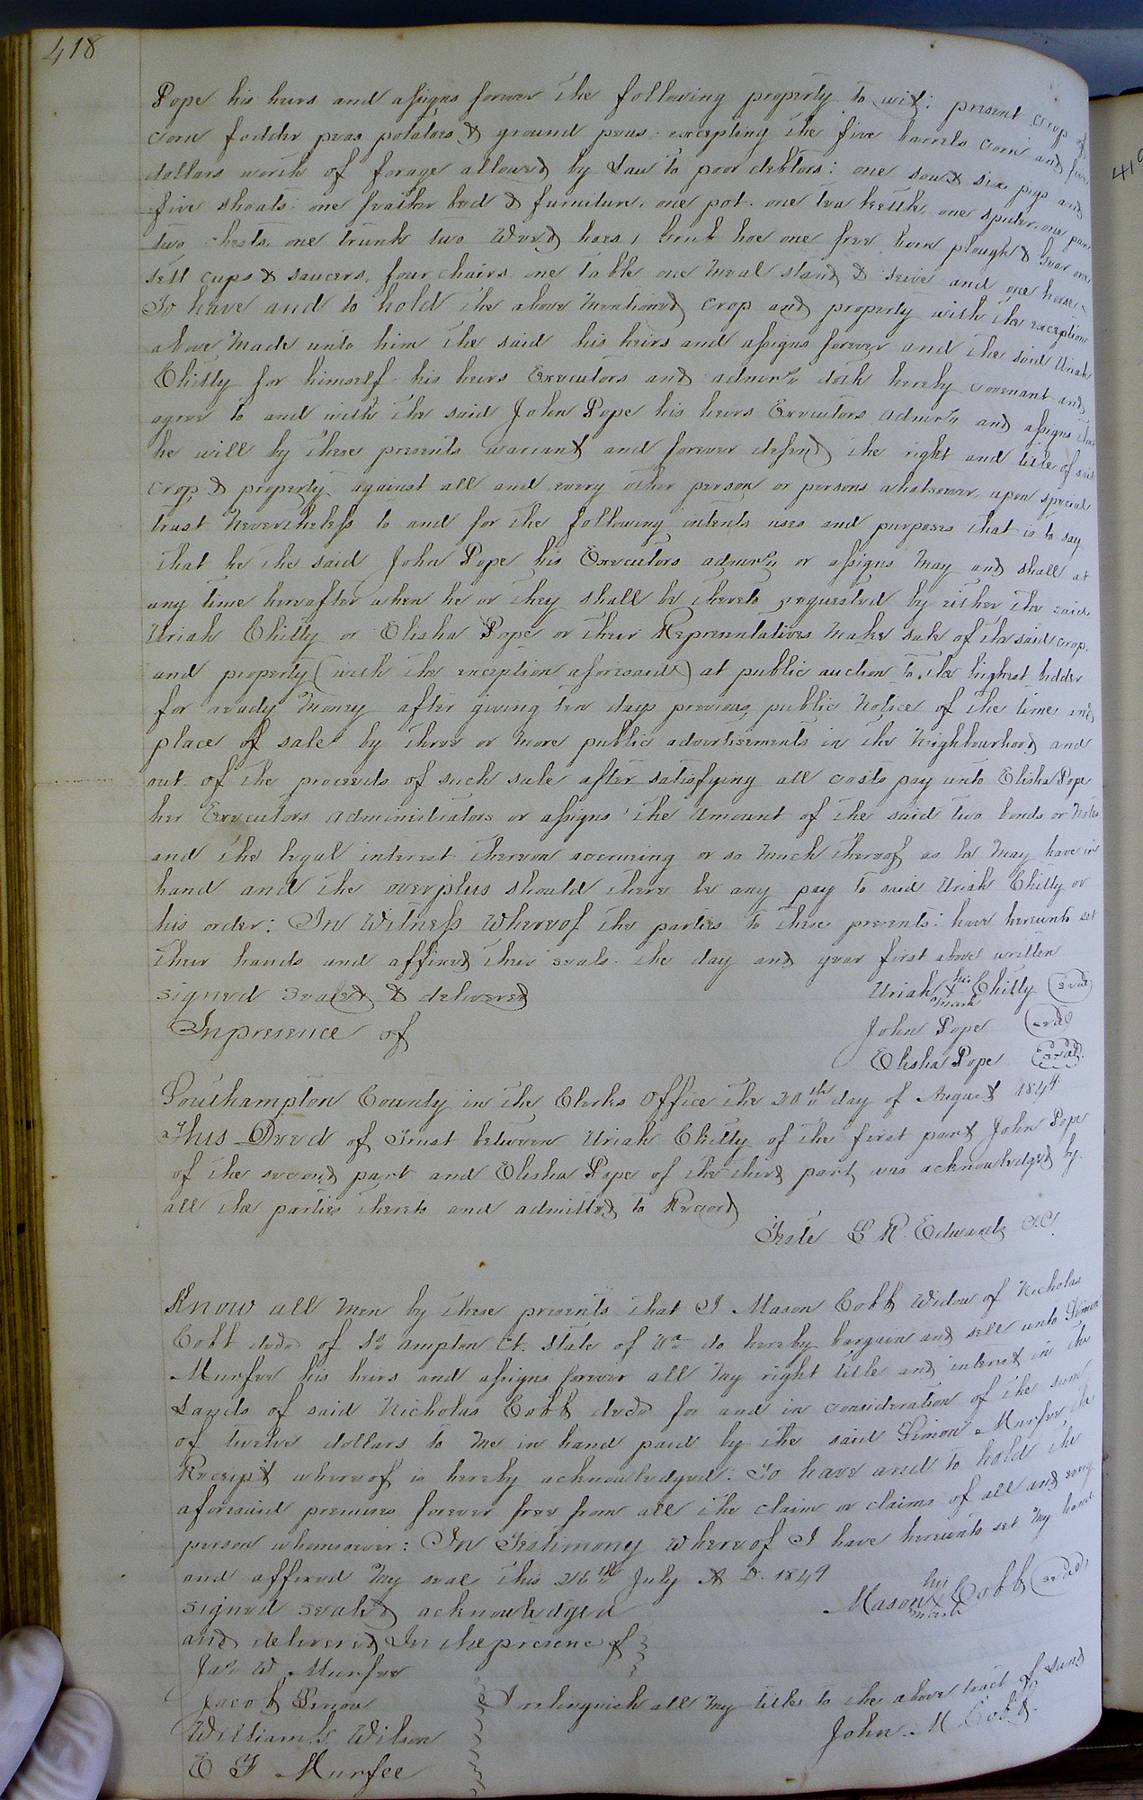 418
Pope his heirs and assigns forever the following property to wit: present crop of
corn fodder peas potatoes & ground peas excepting the five barrels corn and five
dollars worth of forage allowed by Law to poor debtors: one sow & six pigs and
five shoats: one feather bed & furniture, one pot. one tea kettle, one spider, one pan
two chests, one trunk two Weed hoes, 1 Grub hoe one free born plough & gear one
sett cups & saucers, four chairs one table one meal stand & seive and one horse
To have and to hold the above mentioned crop and property with the exception
above Made unto him the said his heirs and assigns forever and the said Uriah
Chitty for himself his heirs Executors and admin.rs doth hereby covenant and
agree to and with the said John Pope his heirs Executors admin.rs and assigns that
he will by these presents warrant and forever defend the right and title of said
crop & property against all and every other person or persons whatsoever, upon special
trust Nevertheless to and for the following intents uses and purposes that is to say
that he the said John Pope his Executors admin.rs or assigns May and shall at
any time hereafter when he or they shall be thereto requested by either the said
Uriah Chitty or Elisha Pope or their Representatives Make sale of the said crop
and property (with the exception aforesaid) at public auction to the highest bidder
for ready Money after giving ten days previous public Notice of the time and
place of sale by three or More public advertisements in the Neighbourhood and
out of the proceeds of such sale after satisfying all costs pay unto Elisha Pope
her Executors administrators or assigns the amount of the said two bonds or Notes
and the legal interest thereon accruing or so Much thereof as he May have in
hand and the overplus should there be any pay to said Uriah Chitty or
his order: In Witness Whereof the parties to these presents: have hereunto set
their hands and affixed their seals the day and year first above written
signed sealed & delivered Uriah his x mark Chitty (seal)
In presence of John Pope (seal)
Elisha Pope (seal)
Southampton County in the Clerks Office the 20th day of August 1844
This Deed of Trust between Uriah Chitty of the first part John Pope
of the second part and Elisha Pope of the third part, was acknowledged by
all the parties thereto and admitted to Record
Teste L R Edwards C.C.
Know all Men by these presents that I Mason Cobb Widow of Nicholas
Cobb decd. of So ampton Ct. State of Va do hereby bargain and sell unto Simon
Murfee his heirs and assigns forever all My right title and interest in the
Lands of said Nicholas Cobb decd for and in consideration of the sum
of twelve dollars to Me in hand paid by the said Simon Murfee the
Receipt whereof is hereby acknowledged: To have and to hold the
aforesaid premises forever free from all the claim or claims of all and every
person whomsoever: In Testimony whereof I have hereunto set My hand
and affixed My seal this 26th July A D. 1849
signed sealed acknowledged Mason her x mark Cobb (seal)
and delivered In the presence of
Jas W Murfee
Jacob Simon I relinquish all My title to the above tract of land
William S. Wilson John M Cobb.
E F Murfee